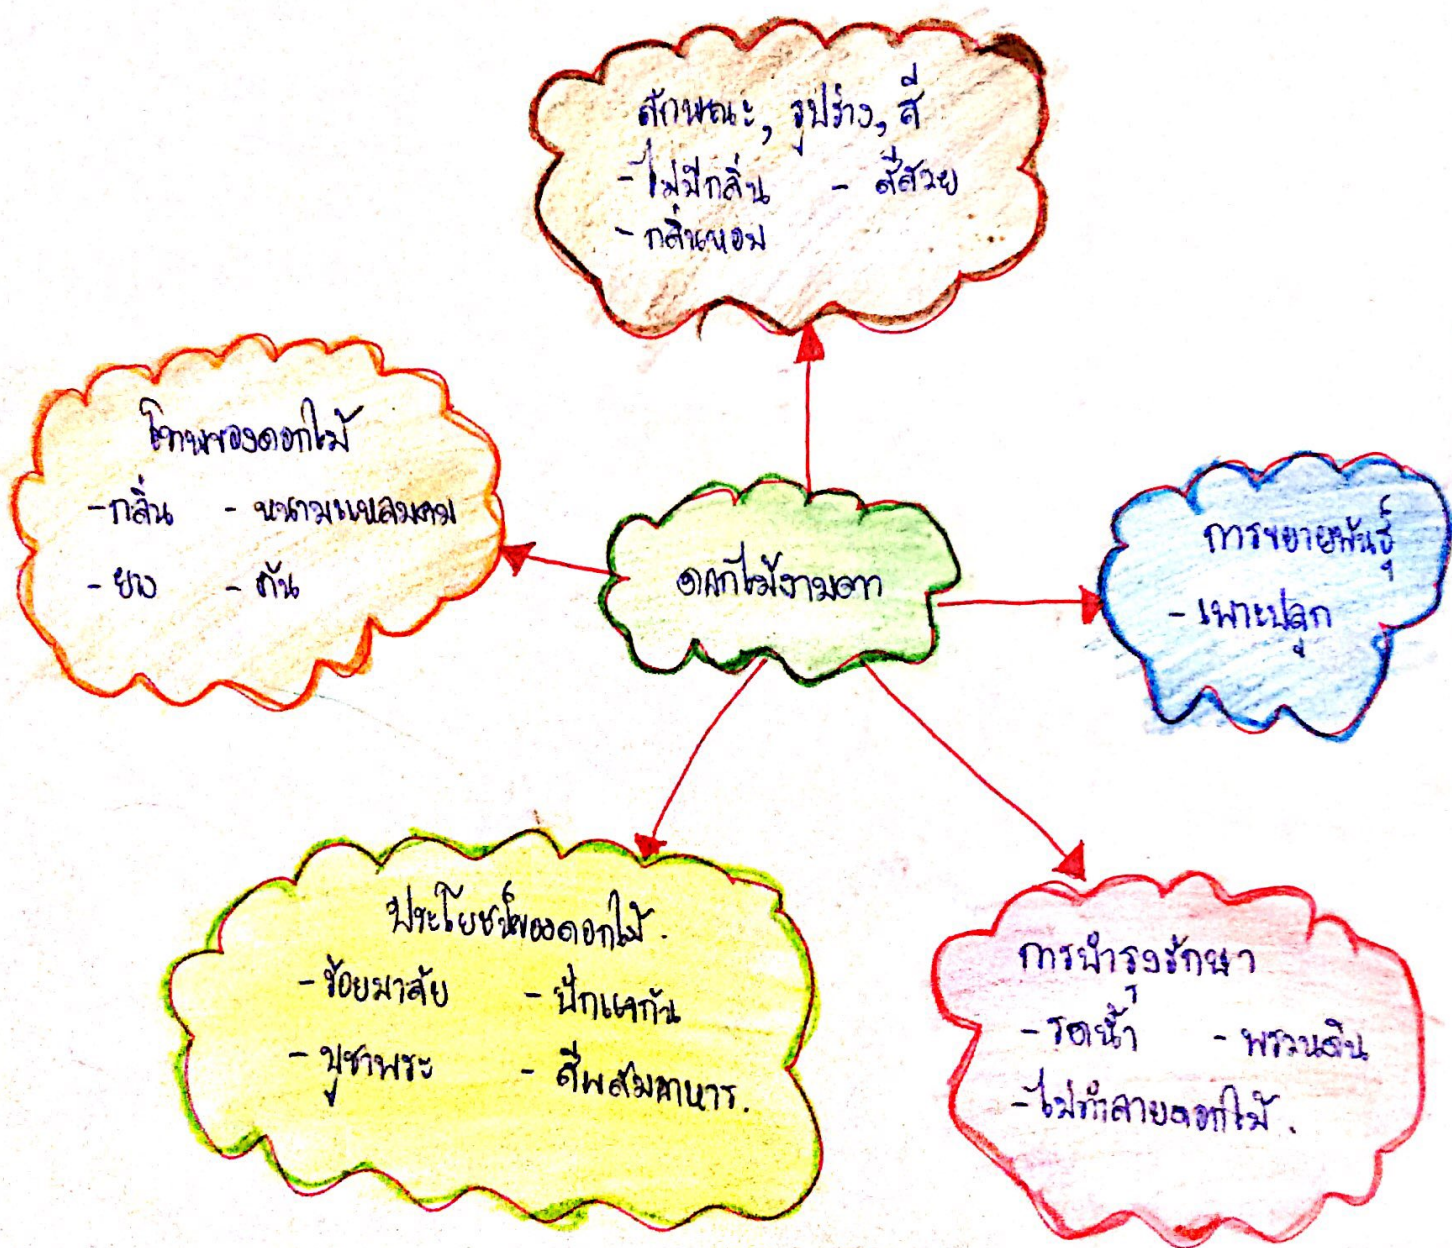 ลักษณะ, รูปร่าง, สี
- ไม่มีกลิ่น - สีสวย
- กลิ่นหอม
โทษของดอกไม้
- กลิ่น - หนามแหลมคม
- ยาง - คัน
ดอกไม้งามตา
การขยายพันธุ์
- เพาะปลูก
ประโยชน์ของดอกไม้.
- ร้อยมาลัย - ปักแจกัน
- บูชาพระ - สีผสมอาหาร.
การบำรุงรักษา
- รดน้ำ - พรวนดิน
- ไม่ทำลายดอกไม้.